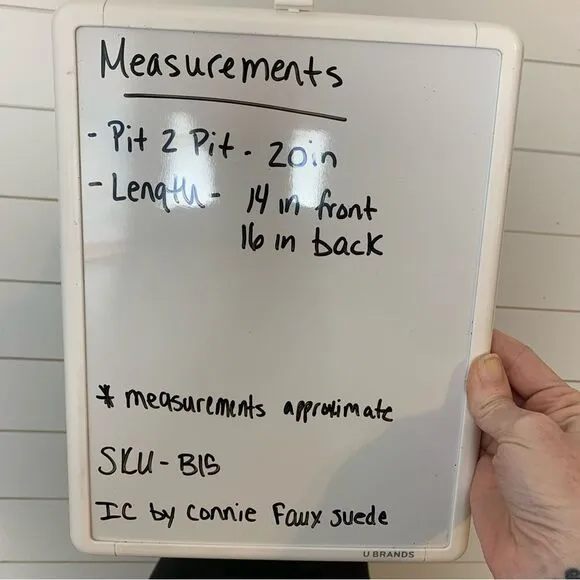 Measurements
- Pit 2 Pit - 20in
- Length - 14 in front
16 in back
* measurements approximate
SKU - B15
IC by Connie Faux Suede
U BRANDS